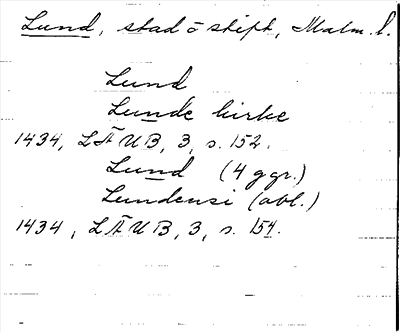 Lund, stad o stift, Malm. l.
Lund
Lunde kirke
1434, LÄUB, 3, s. 152.
Lund (4 ggr.)
Lundensi (abl.)
1434, LÄUB, 3, s. 154.